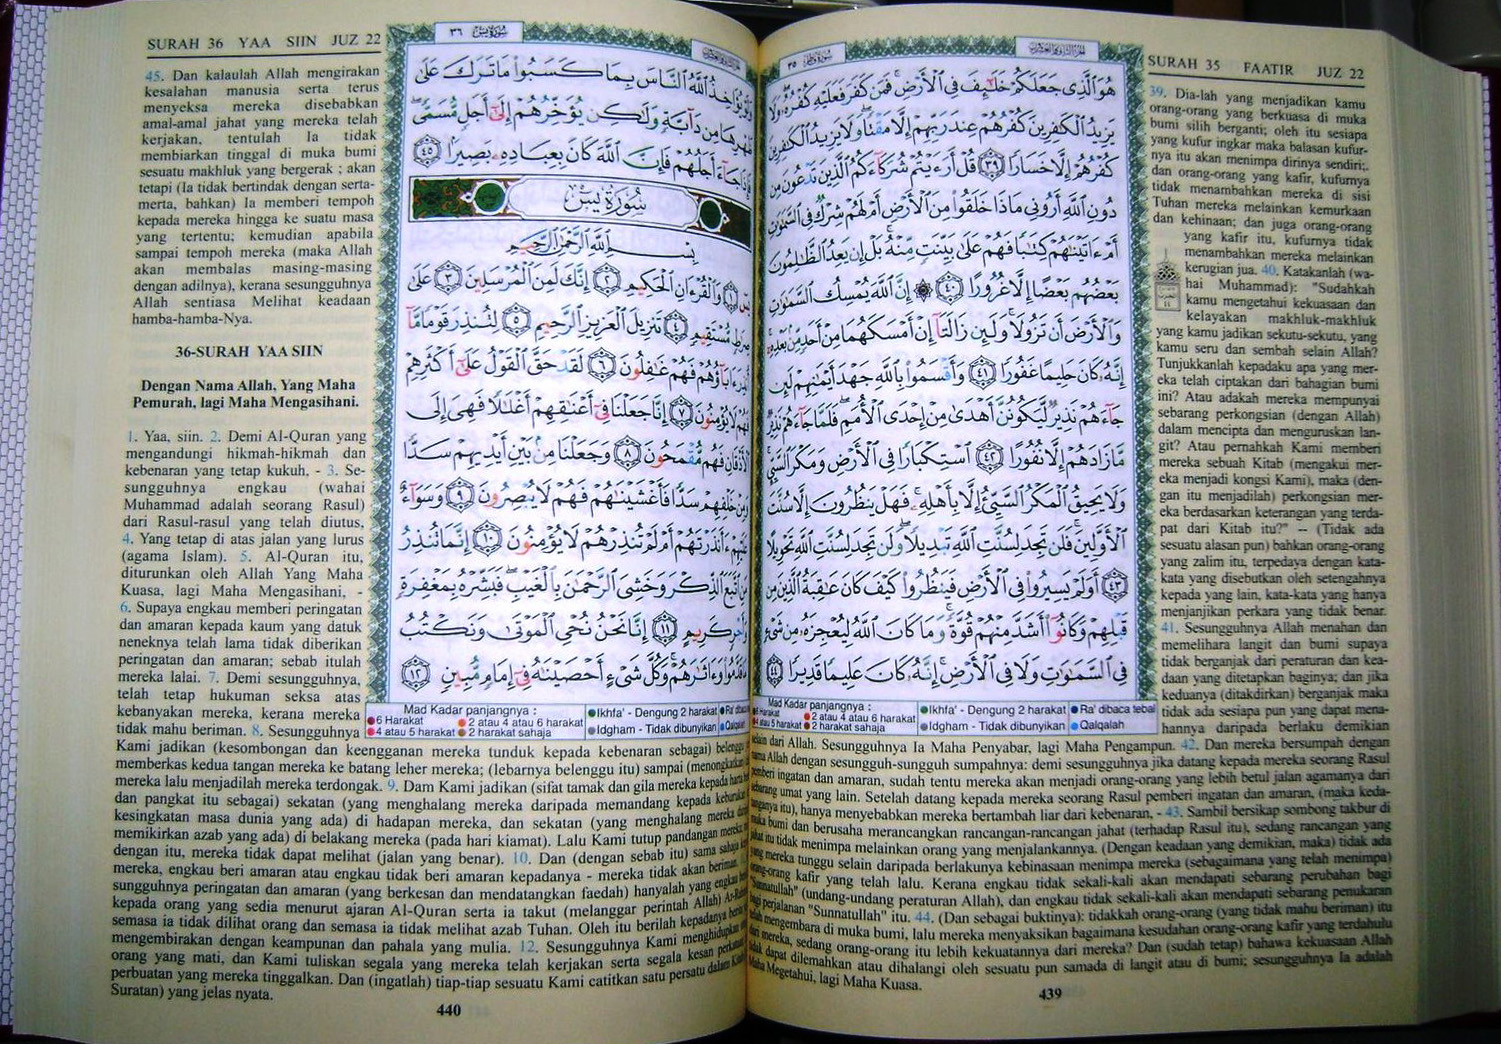 SURAH 35 FAATIR JUZ 22
39. Dia-lah yang menjadikan kamu
orang-orang yang berkuasa di muka
bumi silih berganti; oleh itu sesiapa
yang kufur ingkar maka balasan kufur-
nya itu akan menimpa dirinya sendiri;.
dan orang-orang yang kafir, kufurnya
tidak menambahkan mereka di sisi
Tuhan mereka melainkan kemurkaan
dan kehinaan; dan juga orang-orang
yang kafir itu, kufurnya tidak
menambahkan mereka melainkan
kerugian jua. 40. Katakanlah (wa-
hai Muhammad): "Sudahkah
kamu mengetahui kekuasaan dan
kelayakan makhluk-makhluk
yang kamu jadikan sekutu-sekutu, yang
kamu seru dan sembah selain Allah?
Tunjukkanlah kepadaku apa yang mer-
eka telah ciptakan dari bahagian bumi
ini? Atau adakah mereka mempunyai
sebarang perkongsian (dengan Allah)
dalam mencipta dan menguruskan lan-
git? Atau pernahkah Kami memberi
mereka sebuah Kitab (mengakui mer-
eka menjadi kongsi Kami), maka (den-
gan itu menjadilah) perkongsian mer-
eka berdasarkan keterangan yang terda-
pat dari Kitab itu?" -- (Tidak ada
sesuatu alasan pun) bahkan orang-orang
yang zalim itu, terpedaya dengan kata-
kata yang disebutkan oleh setengahnya
kepada yang lain, kata-kata yang hanya
menjanjikan perkara yang tidak benar.
41. Sesungguhnya Allah menahan dan
memelihara langit dan bumi supaya
tidak berganjak dari peraturan dan kea-
daan yang ditetapkan baginya; dan jika
keduanya (ditakdirkan) berganjak maka
tidak ada sesiapa pun yang dapat mena-
hannya daripada berlaku demikian
selain dari Allah. Sesungguhnya Ia Maha Penyabar, lagi Maha Pengampun. 42. Dan mereka bersumpah dengan
nama Allah dengan sesungguh-sungguh sumpahnya: demi sesungguhnya jika datang kepada mereka seorang Rasul
pemberi ingatan dan amaran, sudah tentu mereka akan menjadi orang-orang yang lebih betul jalan agamanya dari
sebarang umat yang lain. Setelah datang kepada mereka seorang Rasul pemberi ingatan dan amaran, (maka keda-
tangannya itu), hanya menyebabkan mereka bertambah liar dari kebenaran, - 43. Sambil bersikap sombong takbur di
muka bumi dan berusaha merancangkan rancangan-rancangan jahat (terhadap Rasul itu), sedang rancangan yang
jahat itu tidak menimpa melainkan orang yang menjalankannya. (Dengan keadaan yang demikian, maka) tidak ada
yang mereka tunggu selain daripada berlakunya kebinasaan menimpa mereka (sebagaimana yang telah menimpa)
orang-orang kafir yang telah lalu. Kerana engkau tidak sekali-kali akan mendapati sebarang perubahan bagi
"Sunnatullah" (undang-undang peraturan Allah), dan engkau tidak sekali-kali akan mendapati sebarang penukaran
bagi perjalanan "Sunnatullah" itu. 44. (Dan sebagai buktinya): tidakkah orang-orang (yang tidak mahu beriman) itu
telah mengembara di muka bumi, lalu mereka menyaksikan bagaimana kesudahan orang-orang kafir yang terdahulu
dari mereka, sedang orang-orang itu lebih kekuatannya dari mereka? Dan (sudah tetap) bahawa kekuasaan Allah
tidak dapat dilemahkan atau dihalangi oleh sesuatu pun samada di langit atau di bumi; sesungguhnya Ia adalah
Maha Megetahui, lagi Maha Kuasa.
٣٥ سورة فاطر
هُوَ الَّذِي جَعَلَكُمْ خَلَٰٓئِفَ فِي الْأَرْضِ ۚ فَمَن كَفَرَ فَعَلَيْهِ كُفْرُهُۥ ۖ وَلَا
يَزِيدُ الْكَٰفِرِينَ كُفْرُهُمْ عِندَ رَبِّهِمْ إِلَّا مَقْتًا ۖ وَلَا يَزِيدُ الْكَٰفِرِينَ
كُفْرُهُمْ إِلَّا خَسَارًا ٣٩ قُلْ أَرَءَيْتُمْ شُرَكَآءَكُمُ الَّذِينَ تَدْعُونَ مِن
دُونِ اللَّهِ أَرُونِي مَاذَا خَلَقُوا مِنَ الْأَرْضِ أَمْ لَهُمْ شِرْكٌ فِي السَّمَٰوَٰتِ
أَمْ ءَاتَيْنَٰهُمْ كِتَٰبًا فَهُمْ عَلَىٰ بَيِّنَتٍ مِّنْهُ ۚ بَلْ إِن يَعِدُ الظَّٰلِمُونَ
بَعْضُهُم بَعْضًا إِلَّا غُرُورًا ٤٠ ۞ إِنَّ اللَّهَ يُمْسِكُ السَّمَٰوَٰتِ
وَالْأَرْضَ أَن تَزُولَا ۚ وَلَئِن زَالَتَآ إِنْ أَمْسَكَهُمَا مِنْ أَحَدٍ مِّنۢ بَعْدِهِۦٓ ۚ
إِنَّهُۥ كَانَ حَلِيمًا غَفُورًا ٤١ وَأَقْسَمُوا بِاللَّهِ جَهْدَ أَيْمَٰنِهِمْ لَئِن
جَآءَهُمْ نَذِيرٌ لَّيَكُونُنَّ أَهْدَىٰ مِنْ إِحْدَى الْأُمَمِ ۖ فَلَمَّا جَآءَهُمْ نَذِيرٌ
مَّا زَادَهُمْ إِلَّا نُفُورًا ٤٢ اسْتِكْبَارًا فِي الْأَرْضِ وَمَكْرَ السَّيِّئِ ۚ
وَلَا يَحِيقُ الْمَكْرُ السَّيِّئُ إِلَّا بِأَهْلِهِۦ ۚ فَهَلْ يَنظُرُونَ إِلَّا سُنَّتَ
الْأَوَّلِينَ ۚ فَلَن تَجِدَ لِسُنَّتِ اللَّهِ تَبْدِيلًا ۖ وَلَن تَجِدَ لِسُنَّتِ اللَّهِ تَحْوِيلًا
٤٣ أَوَلَمْ يَسِيرُوا فِي الْأَرْضِ فَيَنظُرُوا كَيْفَ كَانَ عَٰقِبَةُ الَّذِينَ مِن
قَبْلِهِمْ وَكَانُوٓا أَشَدَّ مِنْهُمْ قُوَّةً ۚ وَمَا كَانَ اللَّهُ لِيُعْجِزَهُۥ مِن شَيْءٍ
فِي السَّمَٰوَٰتِ وَلَا فِي الْأَرْضِ ۚ إِنَّهُۥ كَانَ عَلِيمًا قَدِيرًا ٤٤
Mad Kadar panjangnya :
6 Harakat 2 atau 4 atau 6 harakat Ikhfa' - Dengung 2 harakat Ra' dibaca tebal
4 atau 5 harakat 2 harakat sahaja Idgham - Tidak dibunyikan Qalqalah
439
SURAH 36 YAA SIIN JUZ 22
45. Dan kalaulah Allah mengirakan
kesalahan manusia serta terus
menyeksa mereka disebabkan
amal-amal jahat yang mereka telah
kerjakan, tentulah Ia tidak
membiarkan tinggal di muka bumi
sesuatu makhluk yang bergerak ; akan
tetapi (Ia tidak bertindak dengan serta-
merta, bahkan) Ia memberi tempoh
kepada mereka hingga ke suatu masa
yang tertentu; kemudian apabila
sampai tempoh mereka (maka Allah
akan membalas masing-masing
dengan adilnya), kerana sesungguhnya
Allah sentiasa Melihat keadaan
hamba-hamba-Nya.
36-SURAH YAA SIIN
Dengan Nama Allah, Yang Maha
Pemurah, lagi Maha Mengasihani.
1. Yaa, siin. 2. Demi Al-Quran yang
mengandungi hikmah-hikmah dan
kebenaran yang tetap kukuh, - 3. Se-
sungguhnya engkau (wahai
Muhammad adalah seorang Rasul)
dari Rasul-rasul yang telah diutus,
4. Yang tetap di atas jalan yang lurus
(agama Islam). 5. Al-Quran itu,
diturunkan oleh Allah Yang Maha
Kuasa, lagi Maha Mengasihani, -
6. Supaya engkau memberi peringatan
dan amaran kepada kaum yang datuk
neneknya telah lama tidak diberikan
peringatan dan amaran; sebab itulah
mereka lalai. 7. Demi sesungguhnya,
telah tetap hukuman seksa atas
kebanyakan mereka, kerana mereka
tidak mahu beriman. 8. Sesungguhnya
Kami jadikan (kesombongan dan keengganan mereka tunduk kepada kebenaran sebagai) belenggu
memberkas kedua tangan mereka ke batang leher mereka; (lebarnya belenggu itu) sampai (menongkatkan
mereka lalu menjadilah mereka terdongak. 9. Dam Kami jadikan (sifat tamak dan gila mereka kepada harta
dan pangkat itu sebagai) sekatan (yang menghalang mereka daripada memandang kepada
kesingkatan masa dunia yang ada) di hadapan mereka, dan sekatan (yang menghalang mereka
memikirkan azab yang ada) di belakang mereka (pada hari kiamat). Lalu Kami tutup pandangan mereka
dengan itu, mereka tidak dapat melihat (jalan yang benar). 10. Dan (dengan sebab itu) sama sahaja
mereka, engkau beri amaran atau engkau tidak beri amaran kepadanya - mereka tidak akan beriman.
sungguhnya peringatan dan amaran (yang berkesan dan mendatangkan faedah) hanyalah yang engkau
kepada orang yang sedia menurut ajaran Al-Quran serta ia takut (melanggar perintah Allah)
semasa ia tidak dilihat orang dan semasa ia tidak melihat azab Tuhan. Oleh itu berilah kepadanya
mengembirakan dengan keampunan dan pahala yang mulia. 12. Sesungguhnya Kami menghidupkan
orang yang mati, dan Kami tuliskan segala yang mereka telah kerjakan serta segala kesan
perbuatan yang mereka tinggalkan. Dan (ingatlah) tiap-tiap sesuatu Kami catitkan satu persatu dalam
Suratan) yang jelas nyata.
٣٦ سورة يس
وَلَوْ يُؤَاخِذُ اللَّهُ النَّاسَ بِمَا كَسَبُوا مَا تَرَكَ عَلَىٰ
ظَهْرِهَا مِن دَآبَّةٍ وَلَٰكِن يُؤَخِّرُهُمْ إِلَىٰٓ أَجَلٍ مُّسَمًّى ۖ
فَإِذَا جَآءَ أَجَلُهُمْ فَإِنَّ اللَّهَ كَانَ بِعِبَادِهِۦ بَصِيرًا ٤٥
سُورَةُ يسٓ
بِسْمِ اللَّهِ الرَّحْمَٰنِ الرَّحِيمِ
يسٓ ١ وَالْقُرْءَانِ الْحَكِيمِ ٢ إِنَّكَ لَمِنَ الْمُرْسَلِينَ ٣ عَلَىٰ
صِرَٰطٍ مُّسْتَقِيمٍ ٤ تَنزِيلَ الْعَزِيزِ الرَّحِيمِ ٥ لِتُنذِرَ قَوْمًا مَّآ
أُنذِرَ ءَابَآؤُهُمْ فَهُمْ غَٰفِلُونَ ٦ لَقَدْ حَقَّ الْقَوْلُ عَلَىٰٓ أَكْثَرِهِمْ
فَهُمْ لَا يُؤْمِنُونَ ٧ إِنَّا جَعَلْنَا فِيٓ أَعْنَٰقِهِمْ أَغْلَٰلًا فَهِيَ إِلَى
الْأَذْقَانِ فَهُم مُّقْمَحُونَ ٨ وَجَعَلْنَا مِنۢ بَيْنِ أَيْدِيهِمْ سَدًّا
وَمِنْ خَلْفِهِمْ سَدًّا فَأَغْشَيْنَٰهُمْ فَهُمْ لَا يُبْصِرُونَ ٩ وَسَوَآءٌ
عَلَيْهِمْ ءَأَنذَرْتَهُمْ أَمْ لَمْ تُنذِرْهُمْ لَا يُؤْمِنُونَ ١٠ إِنَّمَا تُنذِرُ
مَنِ اتَّبَعَ الذِّكْرَ وَخَشِيَ الرَّحْمَٰنَ بِالْغَيْبِ ۖ فَبَشِّرْهُ بِمَغْفِرَةٍ
وَأَجْرٍ كَرِيمٍ ١١ إِنَّا نَحْنُ نُحْيِ الْمَوْتَىٰ وَنَكْتُبُ
مَا قَدَّمُوا وَءَاثَٰرَهُمْ ۚ وَكُلَّ شَيْءٍ أَحْصَيْنَٰهُ فِيٓ إِمَامٍ مُّبِينٍ ١٢
Mad Kadar panjangnya :
6 Harakat 2 atau 4 atau 6 harakat Ikhfa' - Dengung 2 harakat Ra' dibaca
4 atau 5 harakat 2 harakat sahaja Idgham - Tidak dibunyikan Qalqalah
440